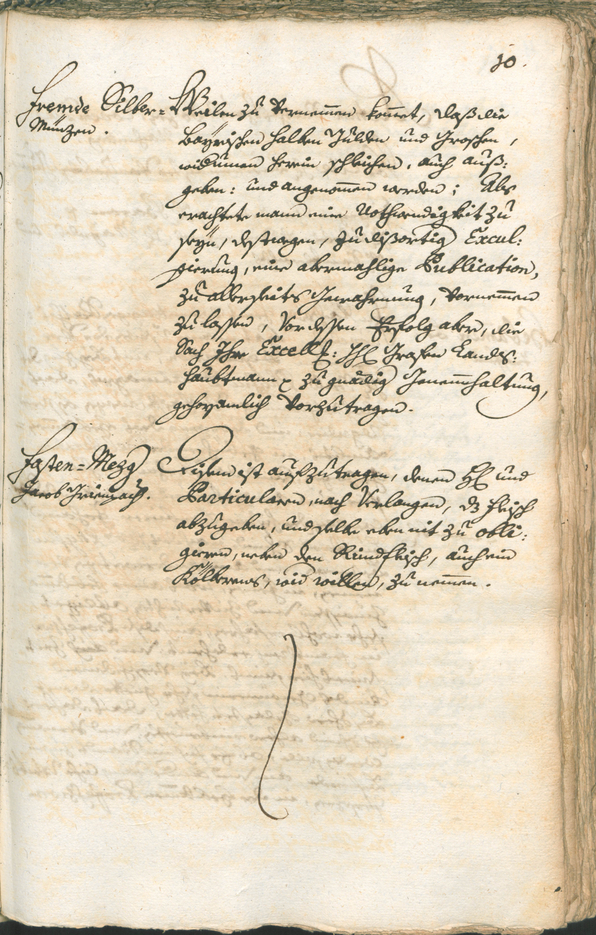 10.
Fremde Silber=
Müntzen.
Weilen zu vernemmen kommet, daß die
Bayrischen halben Gulden und Groschen,
widrumen herein schleichen, auch auß:
geben: und angenommen werden; Als
erachtete mann eine Nothwendigkeit zu
seyn, destwegen, zu dißortig Excul:
pierung, eine abermahlige Publication,
zu allerseits Gewahrnung, vornemmen
zu lassen, vor dessen Erfolg aber, die
Sach Ihro Excell: Grafen Landes:
haubtmann zu gnädig Genemmhaltung,
gehorsamlich vorzutragen.
Fasten=Mezg
Jacob
ist aufzutragen, denen HH und
Particularen, nach Verlangen, dz Fleisch
abzugeben, und selbe eben nit zu obli:
gieren, neben den Rindfleisch, auch ein
Kölbernes, wid willen, zu nemmen.